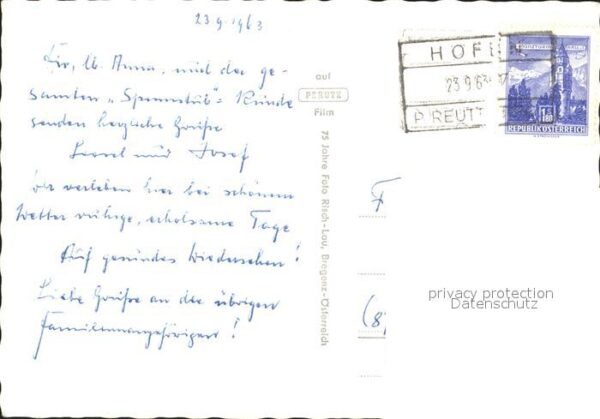 23.9.1963
Dir, lb. Anna, und der ge-
samten "Spinnstub"-Runde
senden herzliche Grüße
und Josef
Wir verleben hier bei schönem
Wetter ruhige, erholsame Tage
Auf gesundes Wiedersehen!
Liebe Grüße an die übrigen
Familienangehörigen!
auf
PERUTZ
Film
75 Jahre Foto Risch-Lau, Bregenz-Österreich
HÖFE
23.9.63
P. REUTT
REPUBLIK ÖSTERREICH
F
(8
privacy protection
Datenschutz